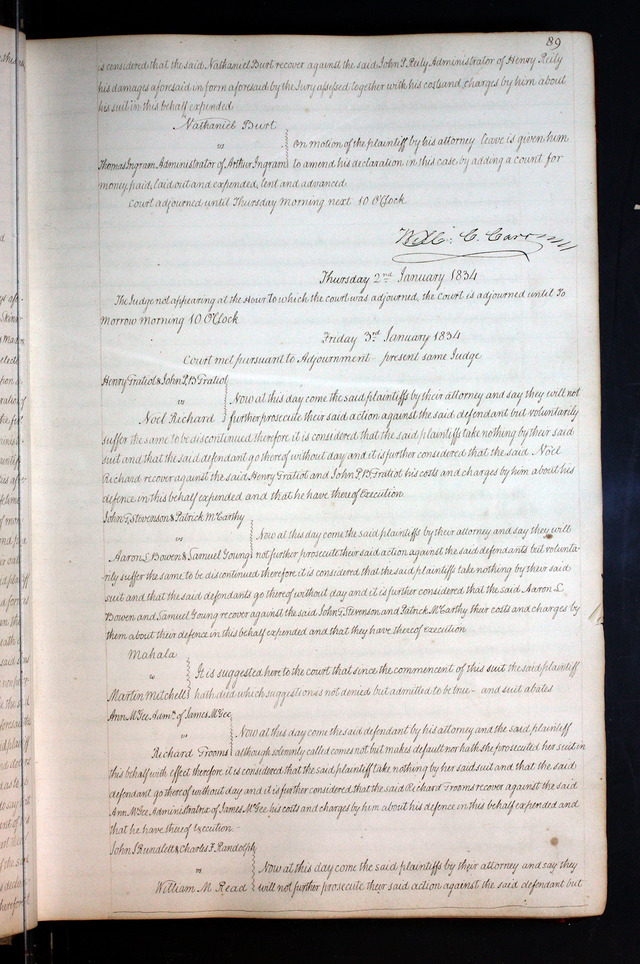 89
is considered that the said Nathaniel Burt recover against the said John P. Reily Administrator of Henry Reily
his damages aforesaid in form aforesaid by the Jury assessed together with his costs and charges by him about
his suit in this behalf expended
Nathaniel Burt
vs
On motion of the plaintiff by his attorney leave is given him
Thomas Ingram Administrator of Arthur Ingram to amend his declaration in this case by adding a count for
money, paid, laid out and expended, lent and advanced.
Court adjourned until Thursday Morning next 10 O'Clock
Will: C. Carr
Thursday 2nd January 1834
The Judge not appearing at the Hour to which the court was adjourned, the Court is adjourned until To
Morrow morning 10 O'Clock
Friday 3rd January 1834
Court met pursuant to Adjournment - present same Judge
Henry Gratiot & John P. B. Gratiot
vs
Now at this day come the said plaintiffs by their attorney and say they will not
Noël Richard further prosecute their said action against the said defendant but voluntarily
suffer the same to be discontinued therefore it is considered that the said plaintiffs take nothing by their said
suit and that the said defendant go there of without day and it is further considered that the said Noël
Richard recover against the said Henry Gratiot and John P. B. Gratiot his costs and charges by him about his
defence in this behalf expended and that he have there of execution
John G. Stevenson & Patrick McCarthy
vs
Now at this day come the said plaintiffs by their attorney and say they will
Aaron S. Bowen & Samuel Young not further prosecute their said action against the said defendants but volunta-
rily suffer the same to be discontinued therefore it is considered that the said plaintiffs take nothing by their said
suit and that the said defendants go there of without day and it is further considered that the said Aaron S.
Bowen and Samuel Young recover against the said John G. Stevenson and Patrick McCarthy their costs and charges by
them about their defence in this behalf expended and that they have there of execution
Mahala
vs
It is suggested here to the court that since the commencent of this suit the said plaintiff
Martin Mitchell hath died which suggestion is not denied but admitted to be true - and suit abates
Ann McGee Admx. of James McGee
vs
Now at this day come the said defendant by his attorney and the said plaintiff
Richard Grooms although solemnly called comes not but makes default nor hath she prosecuted her suit in
this behalf with effect therefore it is considered that the said plaintiff take nothing by her said suit and that the said
defendant go there of without day and it is further considered that the said Richard Grooms recover against the said
Ann McGee Administratrix of James McGee his costs and charges by him about his defence in this behalf expended and
that he have there of execution. -
John S. Rundlett & Charles F. Randolph
vs
Now at this day come the said plaintiffs by their attorney and say they
William M. Read will not further prosecute their said action against the said defendant but